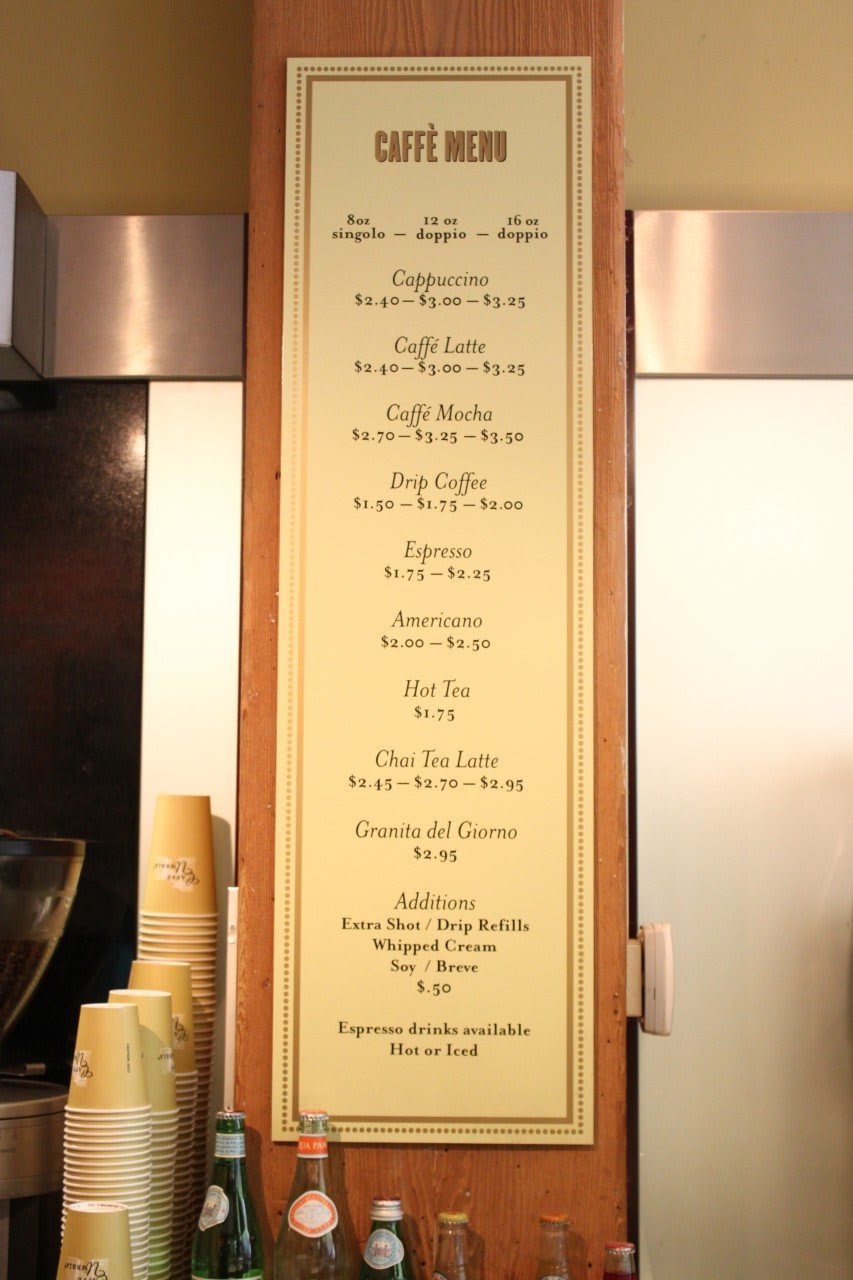 CAFFÈ MENU
8oz 12 oz 16 oz
singolo — doppio — doppio
Cappuccino
$2.40 — $3.00 — $3.25
Caffé Latte
$2.40 — $3.00 — $3.25
Caffé Mocha
$2.70 — $3.25 — $3.50
Drip Coffee
$1.50 — $1.75 — $2.00
Espresso
$1.75 — $2.25
Americano
$2.00 — $2.50
Hot Tea
$1.75
Chai Tea Latte
$2.45 — $2.70 — $2.95
Granita del Giorno
$2.95
Additions
Extra Shot / Drip Refills
Whipped Cream
Soy / Breve
$.50
Espresso drinks available
Hot or Iced
Caffé
Umbria